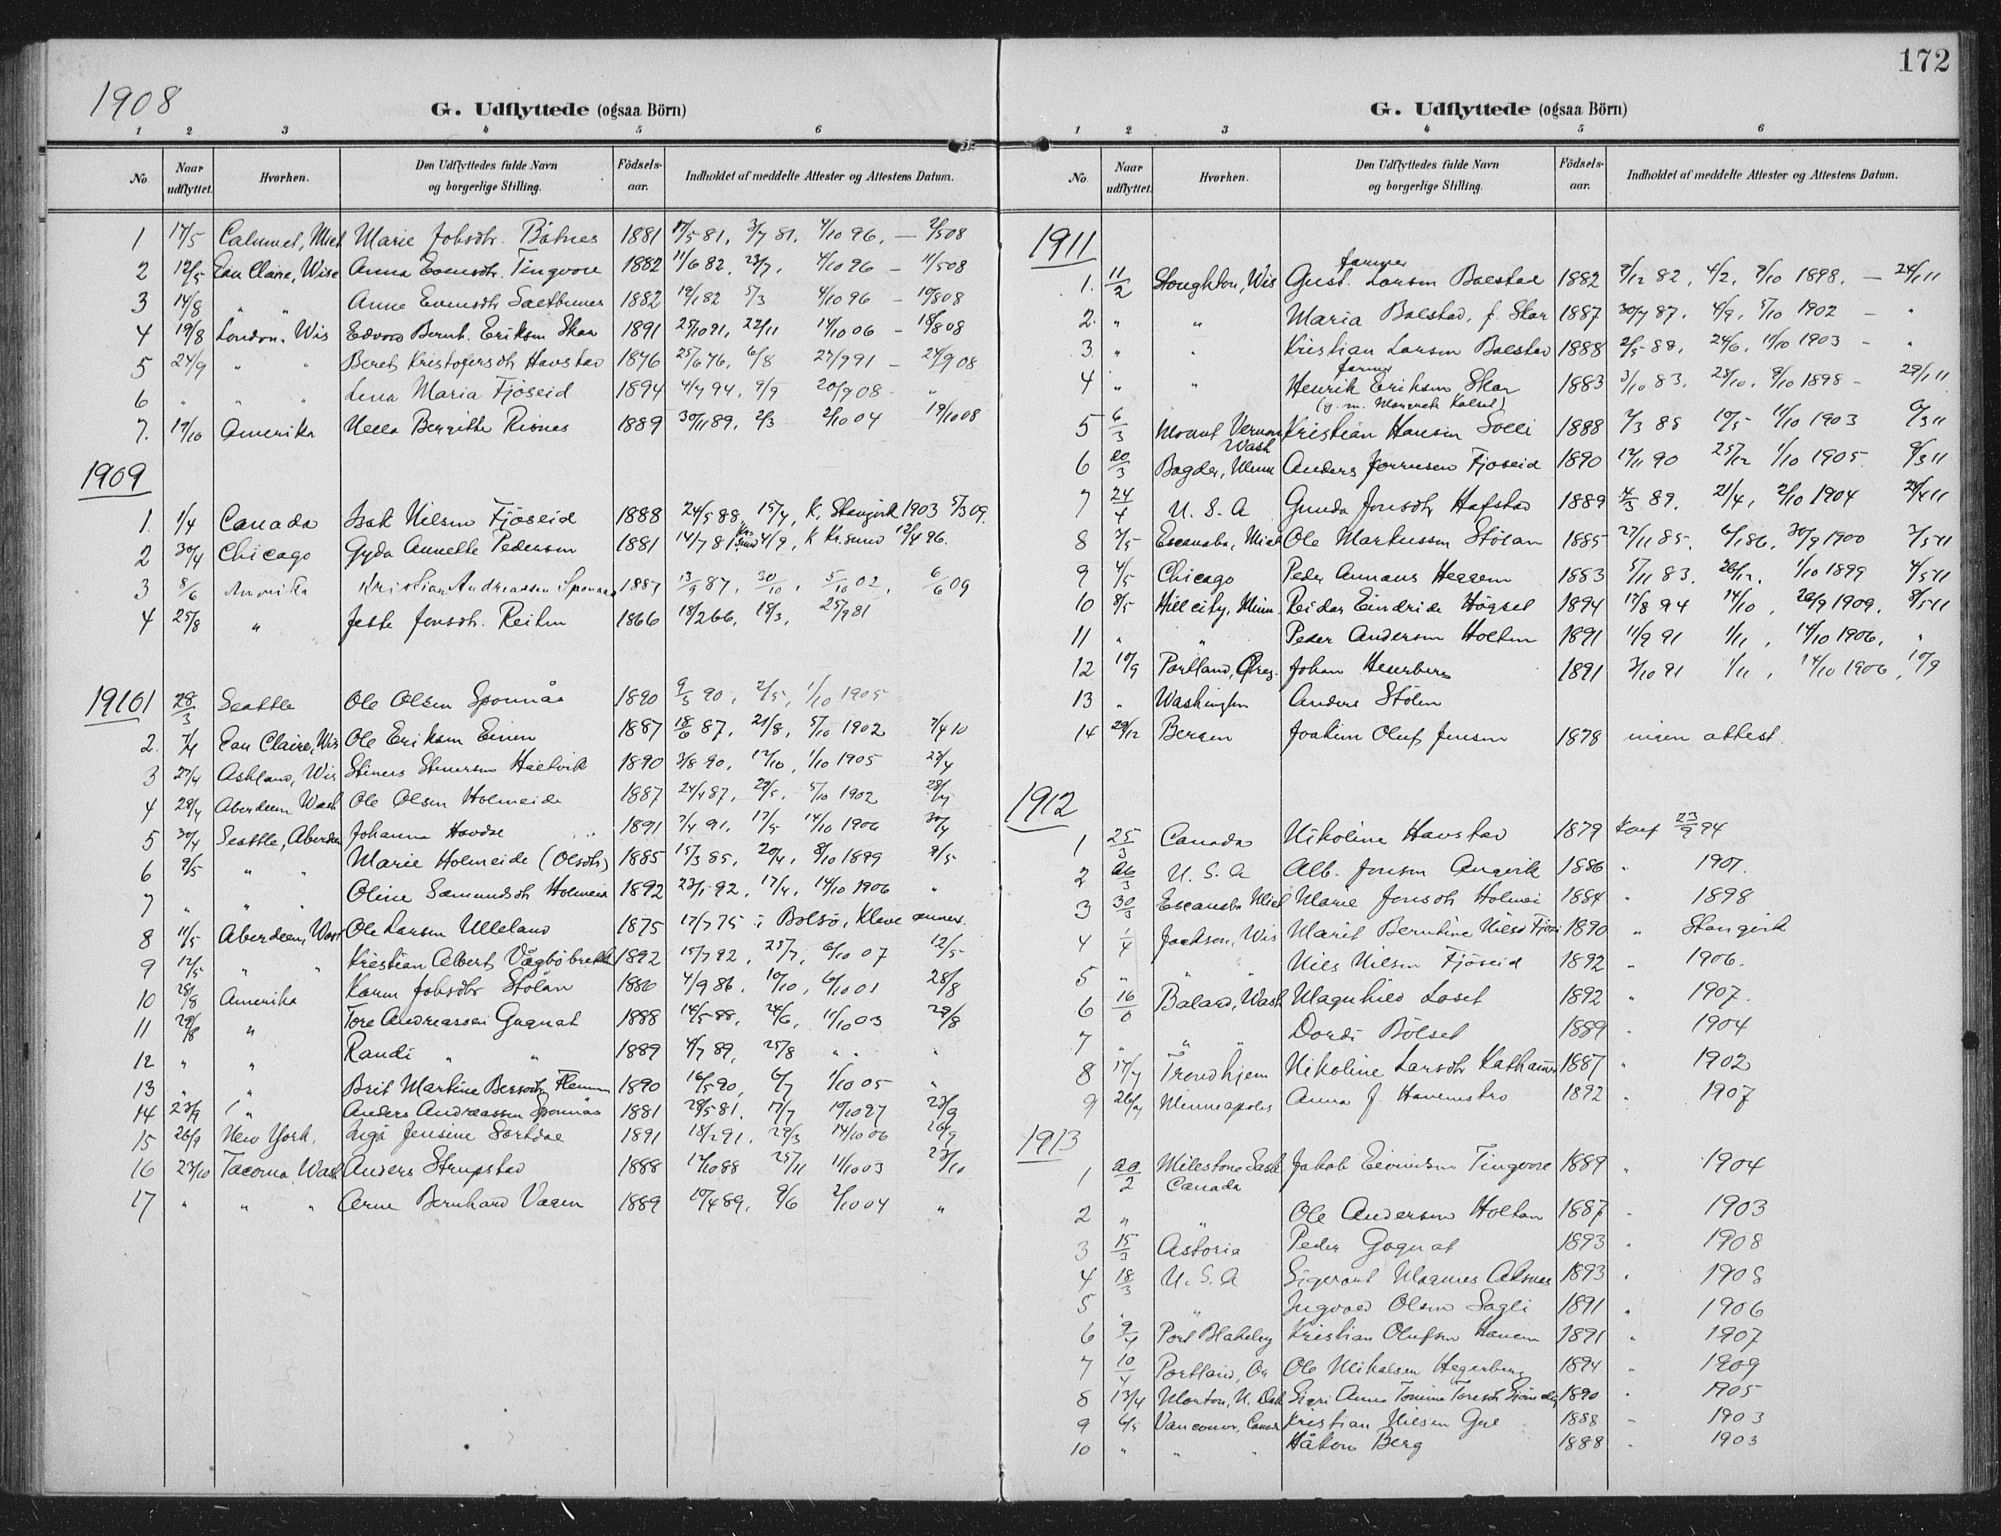 172
1908
G. Udflyttede (ogsaa Börn)
1 2 3 4 5 6
No. Naar udflyttet. Hvorhen. Den Udflyttedes fulde Navn og borgerlige Stilling. Födsels-aar. Indholdet af meddelte Attester og Attestens Datum.
1 17/5 Calumet, Mich Marie Jobsdtr. Båtnes 1881 17/5 81. 3/7 81. 4/10 96. — 2/5 08
2 12/5 Eau Claire, Wisc Anna Evensdtr. Tingvore 1882 11/6 82. 23/7. 4/10 96 — 11/5 08
3 14/8 " " Anne Evensdtr 1882 19/1 82 5/3 4/10 96 — 10/8 08
4 19/8 London, Wis Edvard Bernt. Eriksen Skar 1891 25/10 91. 22/11 14/10 06 — 18/8 08
5 24/9 " " Beret Kristofersdtr Havstad 1876 25/6 76. 6/8 27/9 91 — 24/9 08
6 " " " Lena Maria Fjöseid 1894 4/7 94. 9/9 20/9 08 - "
7. 19/10 Amerika Bergitte Risnes 1889 30/11 89. 2/3 2/10 04 19/10 08
1909
1. 1/4 Canada Isak Nilsen Fjöseid 1888 24/5 88, 15/7, K. Stangvik 1903 5/3 09.
2 30/4 Chicago Gyda Annette Pedersen 1881 14/7 81 Kr.sund 4/9, K Kr.sund 12/4 96.
3 8/6 Amerika Kristian Andreassen Sponaas 1887 13/9 87. 30/10. 5/10 02. 6/6 09
4 25/8 " Jonsdtr. Reiten 1866 18/2 66. 18/3. 25/9 81
1910
1 28/3 Seattle Ole Olsen Sponnås 1890 9/3 90. 2/5. 1/10 1905
2. 7/4 Eau Claire, Wis Ole Eriksen Einen 1887 18/6 87. 21/8. 5/10 1902 7/4 10
3 27/4 Ashland, Wis Steners Stenersen Haltvik 1890 3/8 90. 12/10. 1/10 1905 23/4
4 28/4 Aberdeen Wash Ole Olsen Holmeide 1887 24/4 87. 29/5. 5/10 1902 28/4
5 30/4 Seattle, Aberdeen Johanna Hovde 1891 7/4 91. 17/5 14/10 1906 30/4
6 9/5 " " Marie Holmeide (Olsdtr) 1885 15/3 85. 20/4. 8/10 1899 9/5
7 " " " Oline Samundsdtr Holmeid 1892 23/1 92. 17/4. 14/10 1906 "
8 11/5 Aberdeen, Wash Ole Larsen Ulleland 1875 17/7 75 i Bolsö, Kleve annex.
9 12/5 " " Kristian Albert Vågböbrekk 1892 15/7 92. 25/7. 6/10 07 12/5
10 28/8 Amerika Karen Jobsdtr Stölån 1886 4/9 86. 10/10. 6/10 01 28/8
11 29/8 " Tore Andreassen Gagnat 1888 14/5 88. 24/6. 11/10 03 29/8
12 " " Randi " " 1889 4/7 89. 25/8 " " "
13 " " Brit Martine 1890 16/5 90. 6/7 1/10 05 "
14 23/9 " Anders Andreassen Sponnås 1881 28/5 81. 17/7 19/10 27 23/9
15 26/9 New York. Inga Jensine Sortdae 1891 18/2 91. 29/3 14/10 06 26/9
16 23/10 Tacoma Wash Anders Strupstad 1888 17/10 88 25/11 11/10 03 23/10
17 " " " Arne Bernhard Vaagen 1889 10/4 89. 9/6 2/10 04 "
G. Udflyttede (ogsaa Börn)
1 2 3 4 5 6
No. Naar udflyttet. Hvorhen. Den Udflyttedes fulde Navn og borgerlige Stilling. Födsels-aar. Indholdet af meddelte Attester og Attestens Datum.
1911
farmer
1. 11/2 Stoughton, Wis Gust. Larsen Bolstad 1882 9/12 82. 4/2. 9/10 1898. — 24/1 11
2. " " Maria Bolstad, f. Skar 1887 30/7 87. 4/9. 5/10 1902 — "
3. " " Kristian Larsen Bolstad 1888 2/5 88. 24/6. 11/10 1903 - "
farmer
4 " " Henrik Eriksen Skar 1883 3/10 83. 28/10. 9/10 1898 - 28/1 11
(g. m. Margrete Kalset)
5 6/3 Mount Vernon Wash Kristian Hansen Solli 1888 7/3 88 10/5 11/10 1903 6/3 11
6 20/3 Bagder, Minn Anders Jörgensen Fjöseid 1890 12/11 90 25/12 1/10 1905. 9/3 11
7 24/4 U. S. A Gunda Jonsdtr Hafstad 1889 4/3 89. 21/4. 2/10 1904 24/4 11
8 3/5 Escanaba, Mich Ole Markussen Stölan 1885 27/11 85. 6/1 86. 30/9 1900 3/5 11
9 4/5 Chicago Peder Annaus Heggem 1883 5/11 83. 26/12. 1/10 1899 4/5 11
10 8/5 Hill city, Minn. Reidar Eindride Högset 1894 17/8 94 14/10. 26/9 1909. 8/5 11
11 " " Peder Andersen Holten 1891 11/9 91 1/11, 14/10 1906. "
12 10/9 Portland, Oreg. Johan 1891 3/10 91 1/11, 14/10 1906, 10/9
13 " Washington Anders Stölen
14 29/12 Bergen Joakim Oluf Jensen 1878 ingen attest
1912
1 25/3 Canada Nikoline Havstad 1879 Konf 23/9 94
2 26/3 U. S. A Alb. Jonsen Angvik 1886 " 1901.
3 30/3 Escanaba Mich Marie Jonsdtr Holmei 1884 " 1898
4 1/4 Jackson, Wis Marit Berntine Nilsd Fjös 1890 " Stangvik
5 " " " Nils Nilsen Fjöseid 1892 " 1906.
6 16/6 Balard, Wash Magnhild Loset 1892 " 1907.
7 " " " Dordi Bölset 1889 " 1904
8 17/7 Trondhjem Nikoline Larsdtr 1887 " 1902
9 26/7 Minneapolis Anna J. 1892 " 1907
1913
1 20/2 Milestone Sask Canada Jakob Eivindsen Tingvore 1889 " 1904
2 " " Ole Andersen Holten 1887 " 1903
3 15/3 Astoria Peder Gagnat 1893 " 1908
4 18/3 U. S. A Magnus Aksnes 1893 " 1908
5 " " Ingvald Olsen Sagli 1891 " 1906
6 9/4 Port Blakeley Kristian Olufsen Hanem 1891 " 1907
7 10/4 Portland, Or Ole Mikalsen Hegerberg 1894 " 1909
8 13/4 Morton, N. Dak Sigri Anna Tomine Toresdtr 1890 " 1905
9 6/5 Vancouver, Canada Kristian Nilsen Gul 1888 " 1903
10 " " " Håkon Berg 1888 " 1903